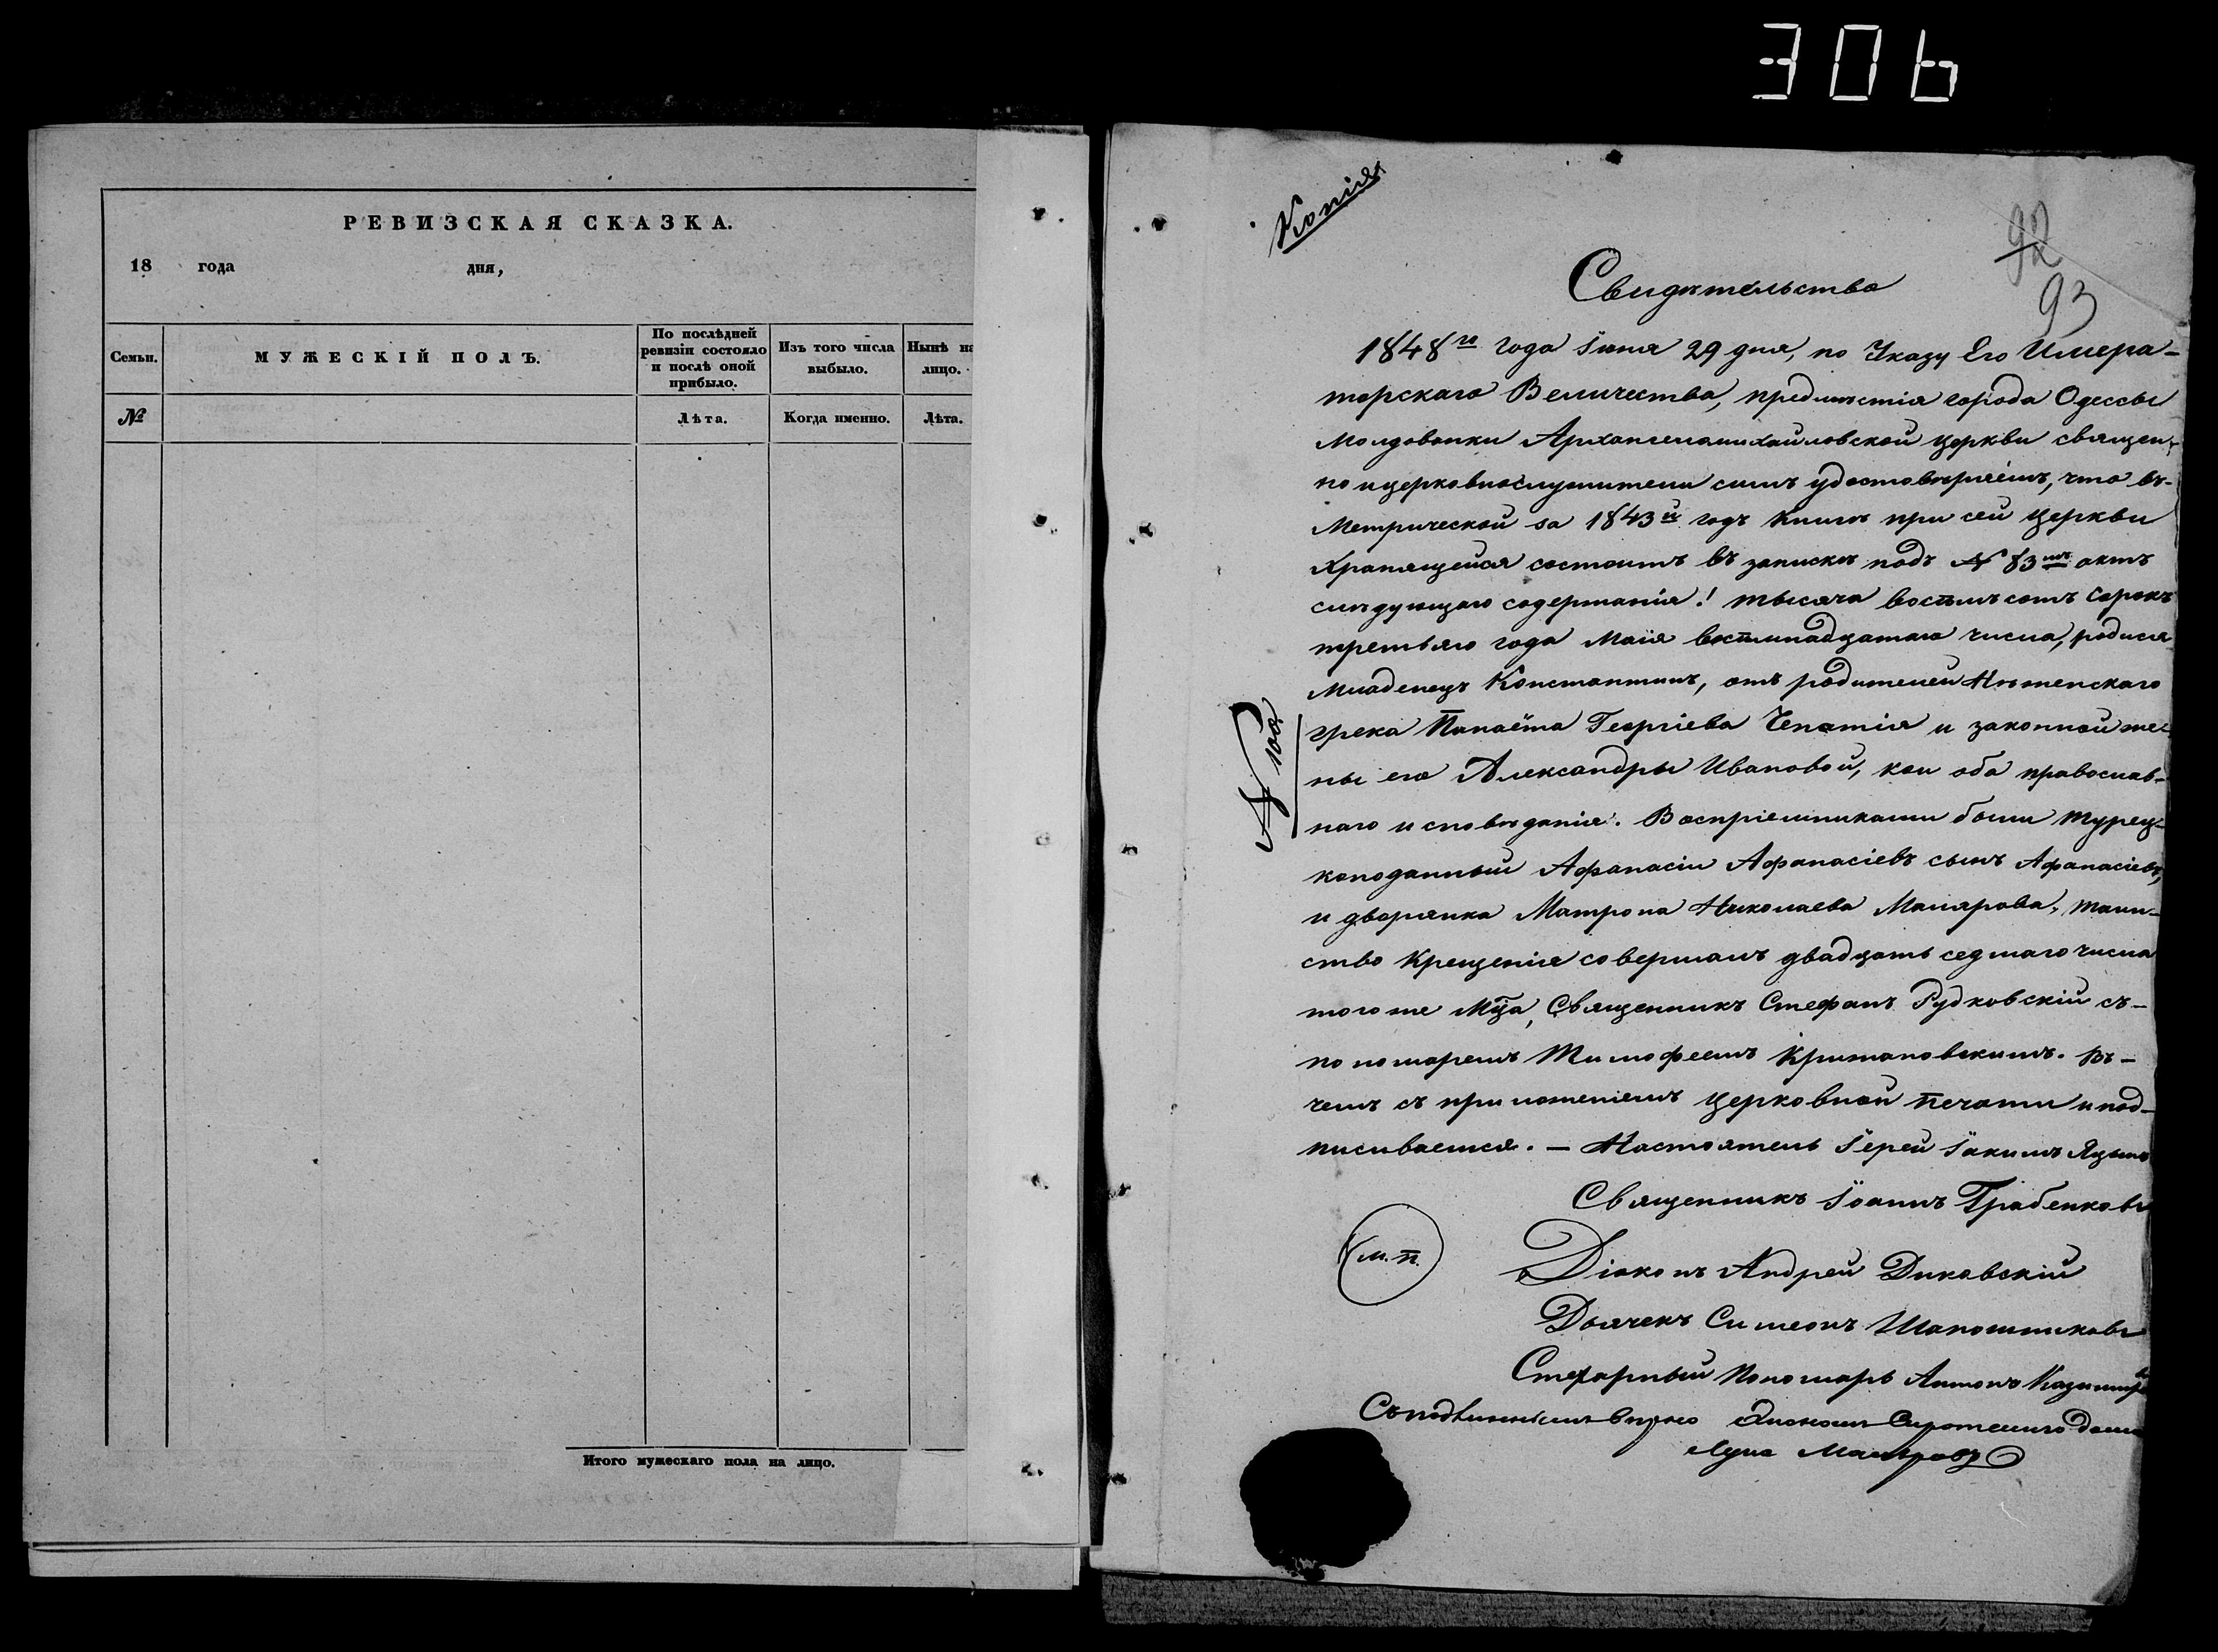 306
РЕВИЗСКАЯ СКАЗКА.
18 года дня,
Семьи.
МУЖЕСКІЙ ПОЛЪ.
По послѣдней
ревизіи состояло
и послѣ оной
прибыло.
Изъ того числа
выбыло.
Нынѣ на
лицо.
№
Лѣта.
Когда именно.
Лѣта.
Итого мужескаго пола на лицо.
Копія
92
93
Свидѣтельство
1848го года Іюня 29 дня, по Указу Его Импера-
торскаго Величества, предмѣстія города Одессы
Молдованки Архангеломихайловской церкви священ-
но и церковнослужители симъ удостовѣряемъ, что въ-
Метрической за 1843й годъ книгѣ при сей церкви
хранящейся состоитъ въ запискѣ подъ № 83мъ актъ
слѣдующаго содержанія! тысяча восемьсотъ сорокъ
третьяго года Маія восемнадцатаго числа, родился
Младенецъ Константинъ, отъ родителей Нѣженскаго
грека Панаіота Георгіева и законной же-
ны его Александры Ивановой, кои оба православ-
наго исповѣданія. Воспріемниками были турец-
коподанный Афанасій Афанасіевъ сынъ Афанасіевъ,
и дворянка Матрона Николаева Малярова, таин-
ство Крещенія совершалъ двадцать седмаго числа
тогоже Мца, Священникъ Стефанъ Рудковскій съ-
пономаремъ Тимофеемъ Крижановскимъ. Въ-
чемъ съ приложеніемъ церковной печати и под-
писиваемся. — Настоятель Іерей Іакимъ
Священникъ Іоаннъ Грабенковъ
(м.п.)
Діаконъ Андрей Диковскій
Дьячекъ Симеонъ Шапошниковъ
Стихарный Пономарь Антонъ
Съ подлиннымъ вѣрно Сиротскаго дома
Лука Маляровъ
№ 108